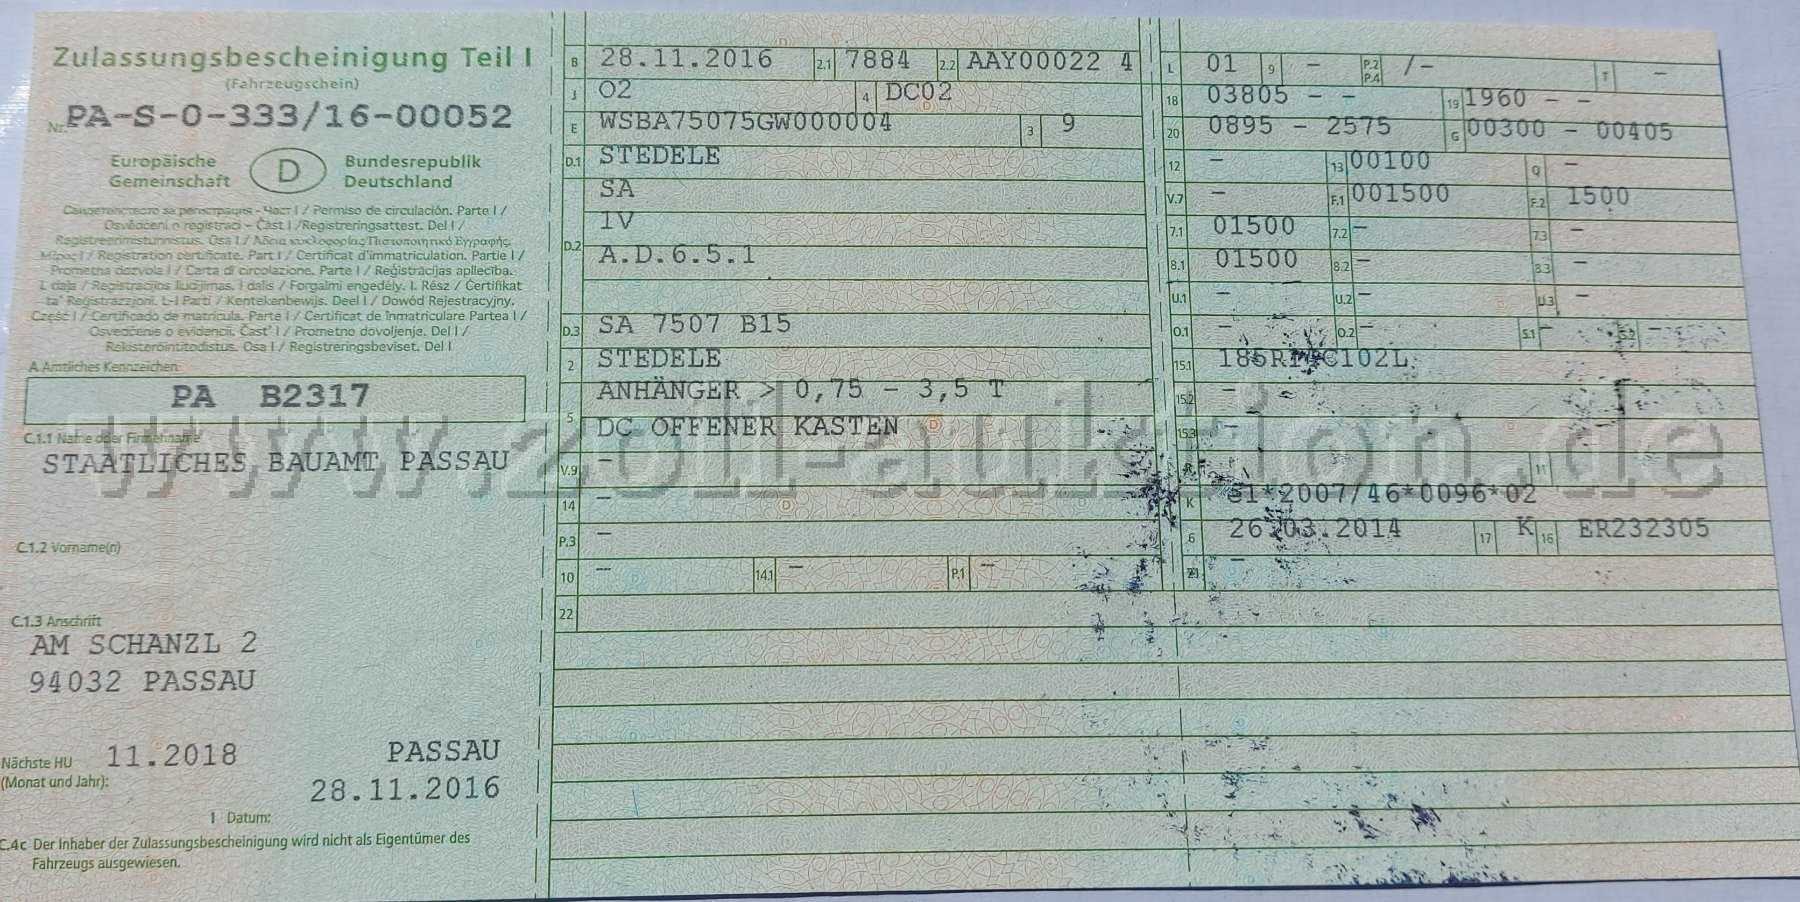 Zulassungsbescheinigung Teil I
(Fahrzeugschein)
Nr. PA-S-0-333/16-00052
Europäische Gemeinschaft D Bundesrepublik Deutschland
Свидетелство за регистрация - Част I / Permiso de circulación. Parte I /
Osvědčení o registraci - Část I / Registreringsattest. Del I /
Registreerimistunnistus. Osa I / Άδεια κυκλοφορίας Πιστοποιητικό Εγγραφής.
Μέρος I / Registration certificate. Part I / Certificat d'immatriculation. Partie I /
Prometna dozvola I / Carta di circolazione. Parte I / Reģistrācijas apliecība.
I. daļa / Registracijos liudijimas. I dalis / Forgalmi engedély. I. Rész / Ċertifikat
ta' Reġistrazzjoni. L-I Parti / Kentekenbewijs. Deel I / Dowód Rejestracyjny.
Część I / Certificado de matrícula. Parte I / Certificat de înmatriculare Partea I /
Osvedčenie o evidencii. Časť I / Prometno dovoljenje. Del I /
Rekisteröintitodistus. Osa I / Registreringsbeviset. Del I
A Amtliches Kennzeichen
PA B2317
C.1.1 Name oder Firmenname
STAATLICHES BAUAMT PASSAU
C.1.2 Vorname(n)
C.1.3 Anschrift
AM SCHANZL 2
94032 PASSAU
Nächste HU (Monat und Jahr): 11.2018
PASSAU
28.11.2016
I Datum:
C.4c Der Inhaber der Zulassungsbescheinigung wird nicht als Eigentümer des
Fahrzeugs ausgewiesen.
B 28.11.2016 2.1 7884 2.2 AAY00022 4
J O2 4 DC02
E WSBA75075GW000004 3 9
D.1 STEDELE
SA
D.2 1V
A.D.6.5.1
D.3 SA 7507 B15
2 STEDELE
5 ANHÄNGER > 0,75 - 3,5 T
DC OFFENER KASTEN
V.9 -
14 -
P.3 -
10 - 14.1 - P.1 -
22
L 01 9 - P.2 P.4 /- T -
18 03805 - - 19 1960 - -
20 0895 - 2575 G 00300 - 00405
12 - 13 00100 Q -
V.7 - F.1 001500 F.2 1500
7.1 01500 7.2 - 7.3 -
8.1 01500 8.2 - 8.3 -
U.1 - U.2 - U.3 -
O.1 - O.2 - S.1 - S.2 -
15.1 C102L
15.2 -
15.3 -
R - 11
K e1*2007/46*0096*02
6 26.03.2014 17 K 16 ER232305
21 -
www.zoll-auktion.de